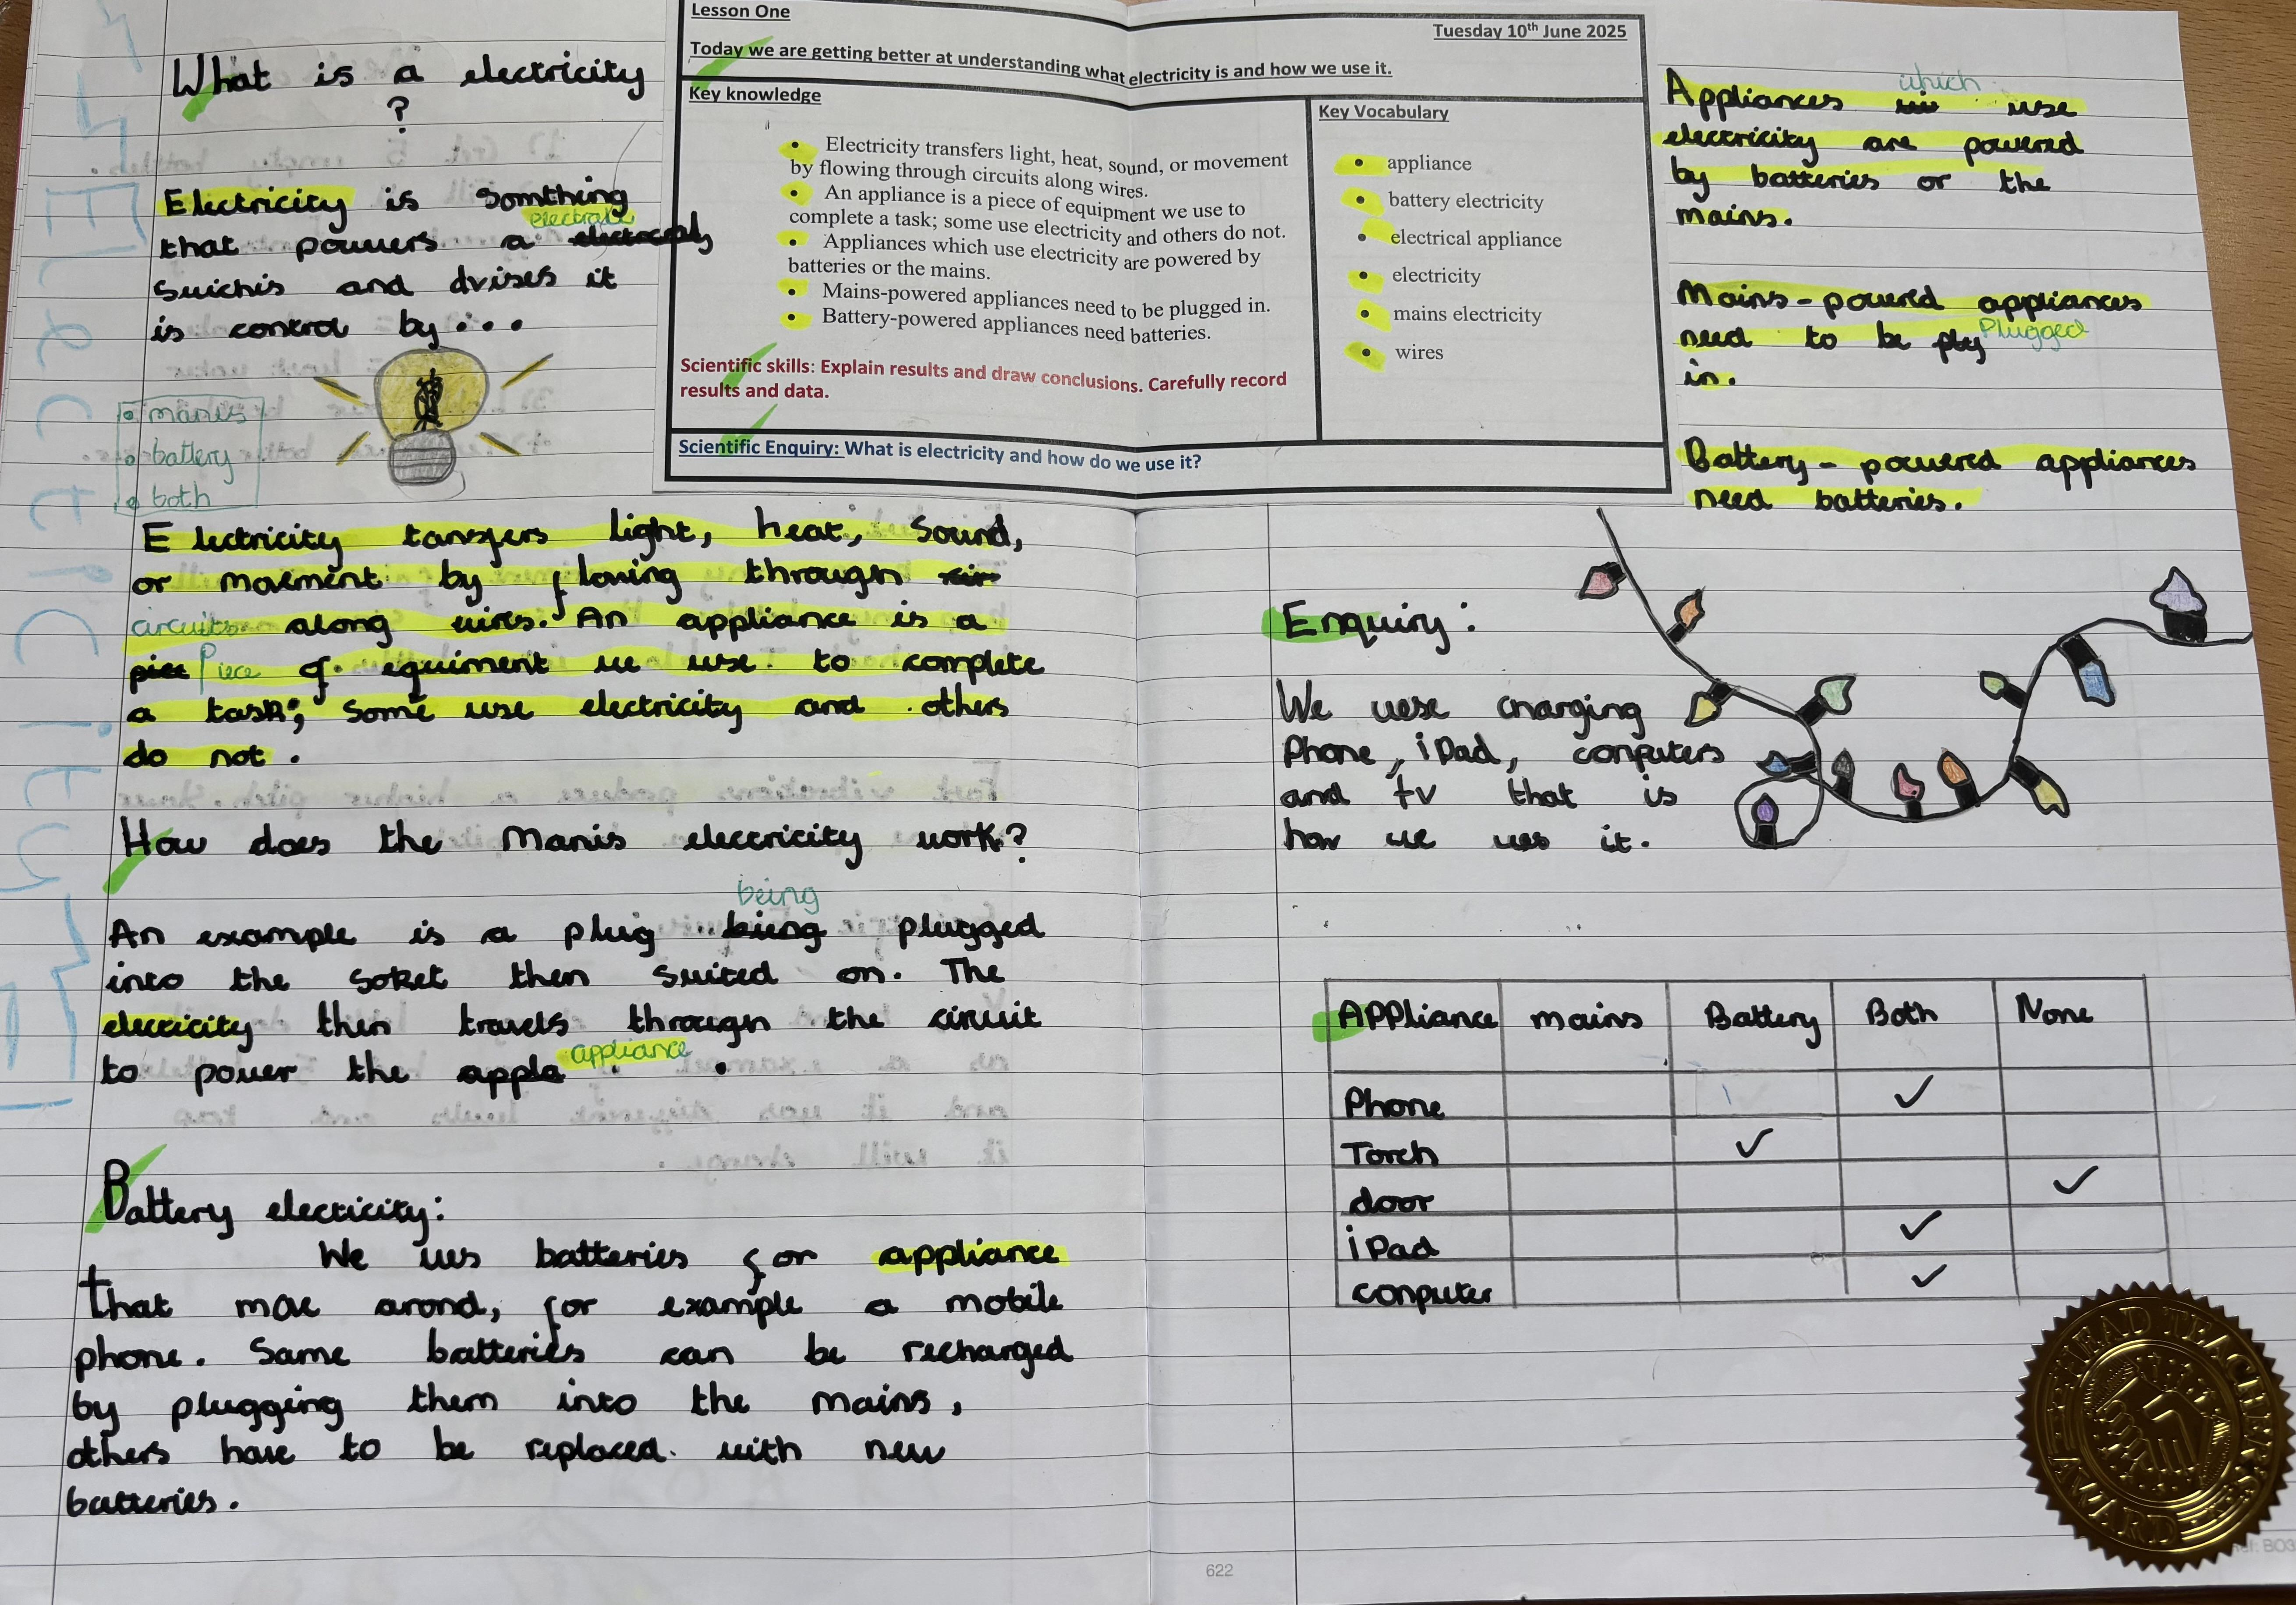 What is a electricity
?
Electricity is somthing
electrake
that powers a
suichis and dvises it
is control by...
manis
battery
both
Electricity
Lesson One
Tuesday 10th June 2025
Today we are getting better at understanding what electricity is and how we use it.
Key knowledge
• Electricity transfers light, heat, sound, or movement
by flowing through circuits along wires.
• An appliance is a piece of equipment we use to
complete a task; some use electricity and others do not.
• Appliances which use electricity are powered by
batteries or the mains.
• Mains-powered appliances need to be plugged in.
• Battery-powered appliances need batteries.
Scientific skills: Explain results and draw conclusions. Carefully record
results and data.
Key Vocabulary
• appliance
• battery electricity
• electrical appliance
• electricity
• mains electricity
• wires
Scientific Enquiry: What is electricity and how do we use it?
Electricity tansfers light, heat, sound,
or movment by flowing through cir
circuits along wires. An appliance is a
piece of equiment we use to complete
a task; some use electricity and others
do not.
How does the Manis electricity work?
being
An example is a plug plugged
into the soket then suited on. The
electicity then travels through the circuit
to power the apple appliance.
Battery electicity:
We ues batteries for appliance
that move arond, for example a mobile
phone. Same batteries can be recharged
by plugging them into the mains,
others have to be replaced with new
batteries.
which
Appliances use
electricity are powered
by batteries or the
mains.
Mains-powered appliances
need to be plug Plugged
in.
Battery-powered appliances
need batteries.
Enquiry:
We uese charging
Phone, iPad, conputers
and tv that is
how we ues it.
Appliance mains Battery Both None
Phone ✓
Torch ✓
door ✓
iPad ✓
conputer ✓
HEAD TEACHER'S AWARD
622